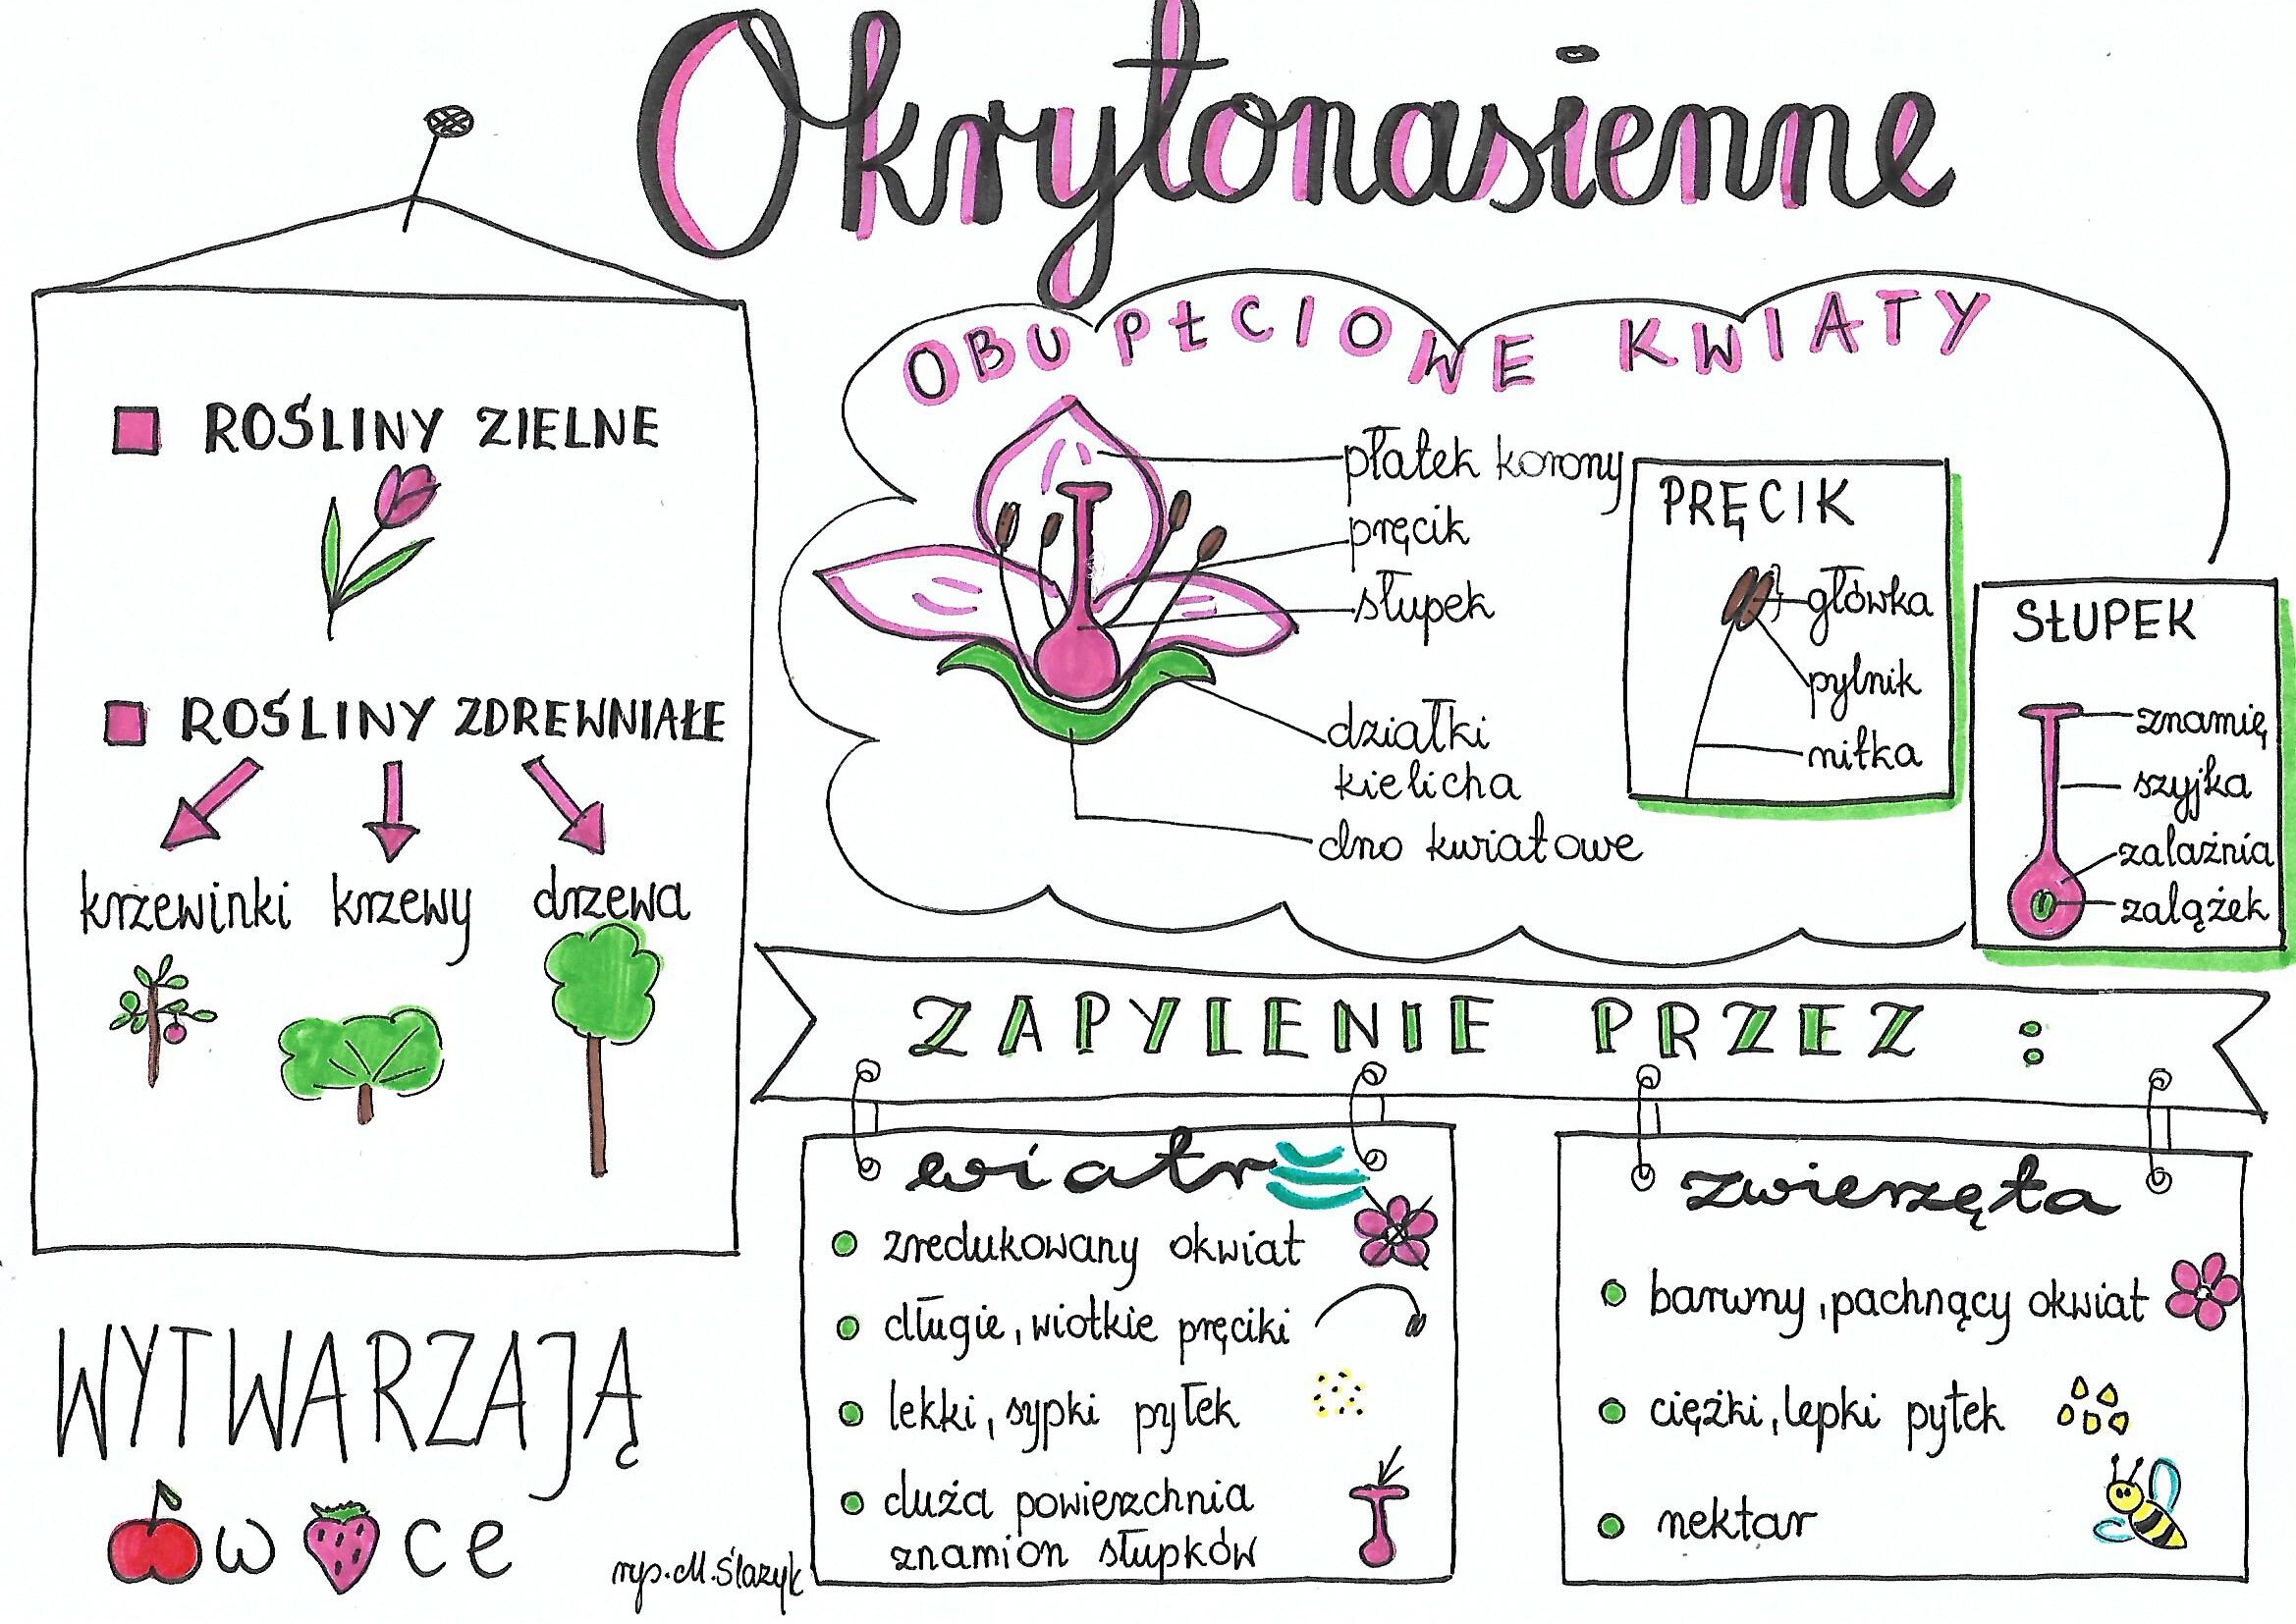 Okrytonasienne
ROŚLINY ZIELNE
ROŚLINY ZDREWNIAŁE
krzewinki krzewy drzewa
OBUPŁCIOWE KWIATY
płatek korony
pręcik
słupek
działki
kielicha
dno kwiatowe
PRĘCIK
główka
pylnik
nitka
SŁUPEK
znamię
szyjka
zalążnia
zalążek
ZAPYLENIE PRZEZ :
wiatr
zredukowany okwiat
długie, wiotkie pręciki
lekki, sypki pyłek
duża powierzchnia
znamion słupków
zwierzęta
barwny, pachnący okwiat
ciężki, lepki pyłek
nektar
WYTWARZAJĄ
owoce
rys. M. Ślazyk